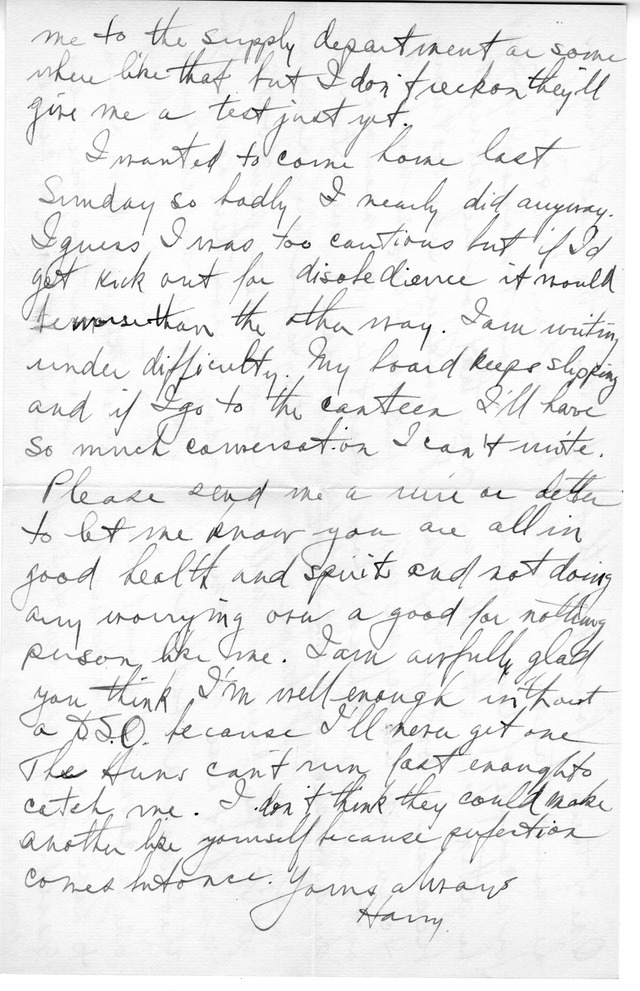 me to the supply department or some
where like that but I don't reckon they'll
give me a test just yet.
I wanted to come home last
Sunday so badly I nearly did anyway.
I guess I was too cautious but if I'd
get kick out for disobedience it would
be worse than the other way. I am writing
under difficulty. My board keeps slipping
and if I go to the canteen I'll have
so much conversation I can't write.
Please send me a wire or letter
to let me know you are all in
good health and spirits and not doing
any worrying over a good for nothing
person like me. I am awfully glad
you think I'm well enough without
a D.S.O. because I'll never get one
The Huns can't run fast enough to
catch me. I don't think they could make
another like yourself because perfection
comes but once. Yours always
Harry.